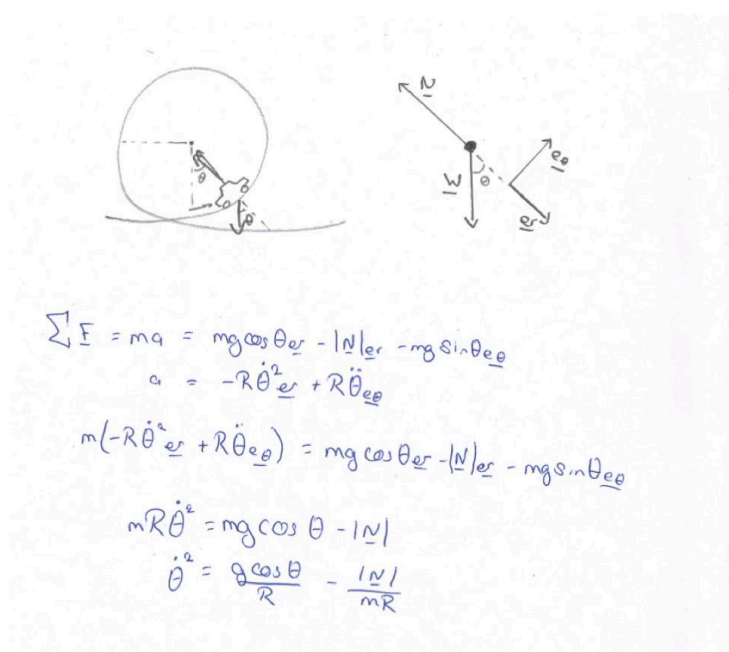 θ
θ
N
W
θ
eθ
er
∑F = ma = mg cos θ er - |N| er - mg sin θ eθ
a = -Rθ̇² er + Rθ̈ eθ
m(-Rθ̇² er + Rθ̈ eθ) = mg cos θ er - |N| er - mg sin θ eθ
mRθ̇² = mg cos θ - |N|
θ̇² = g cos θ / R - |N| / mR